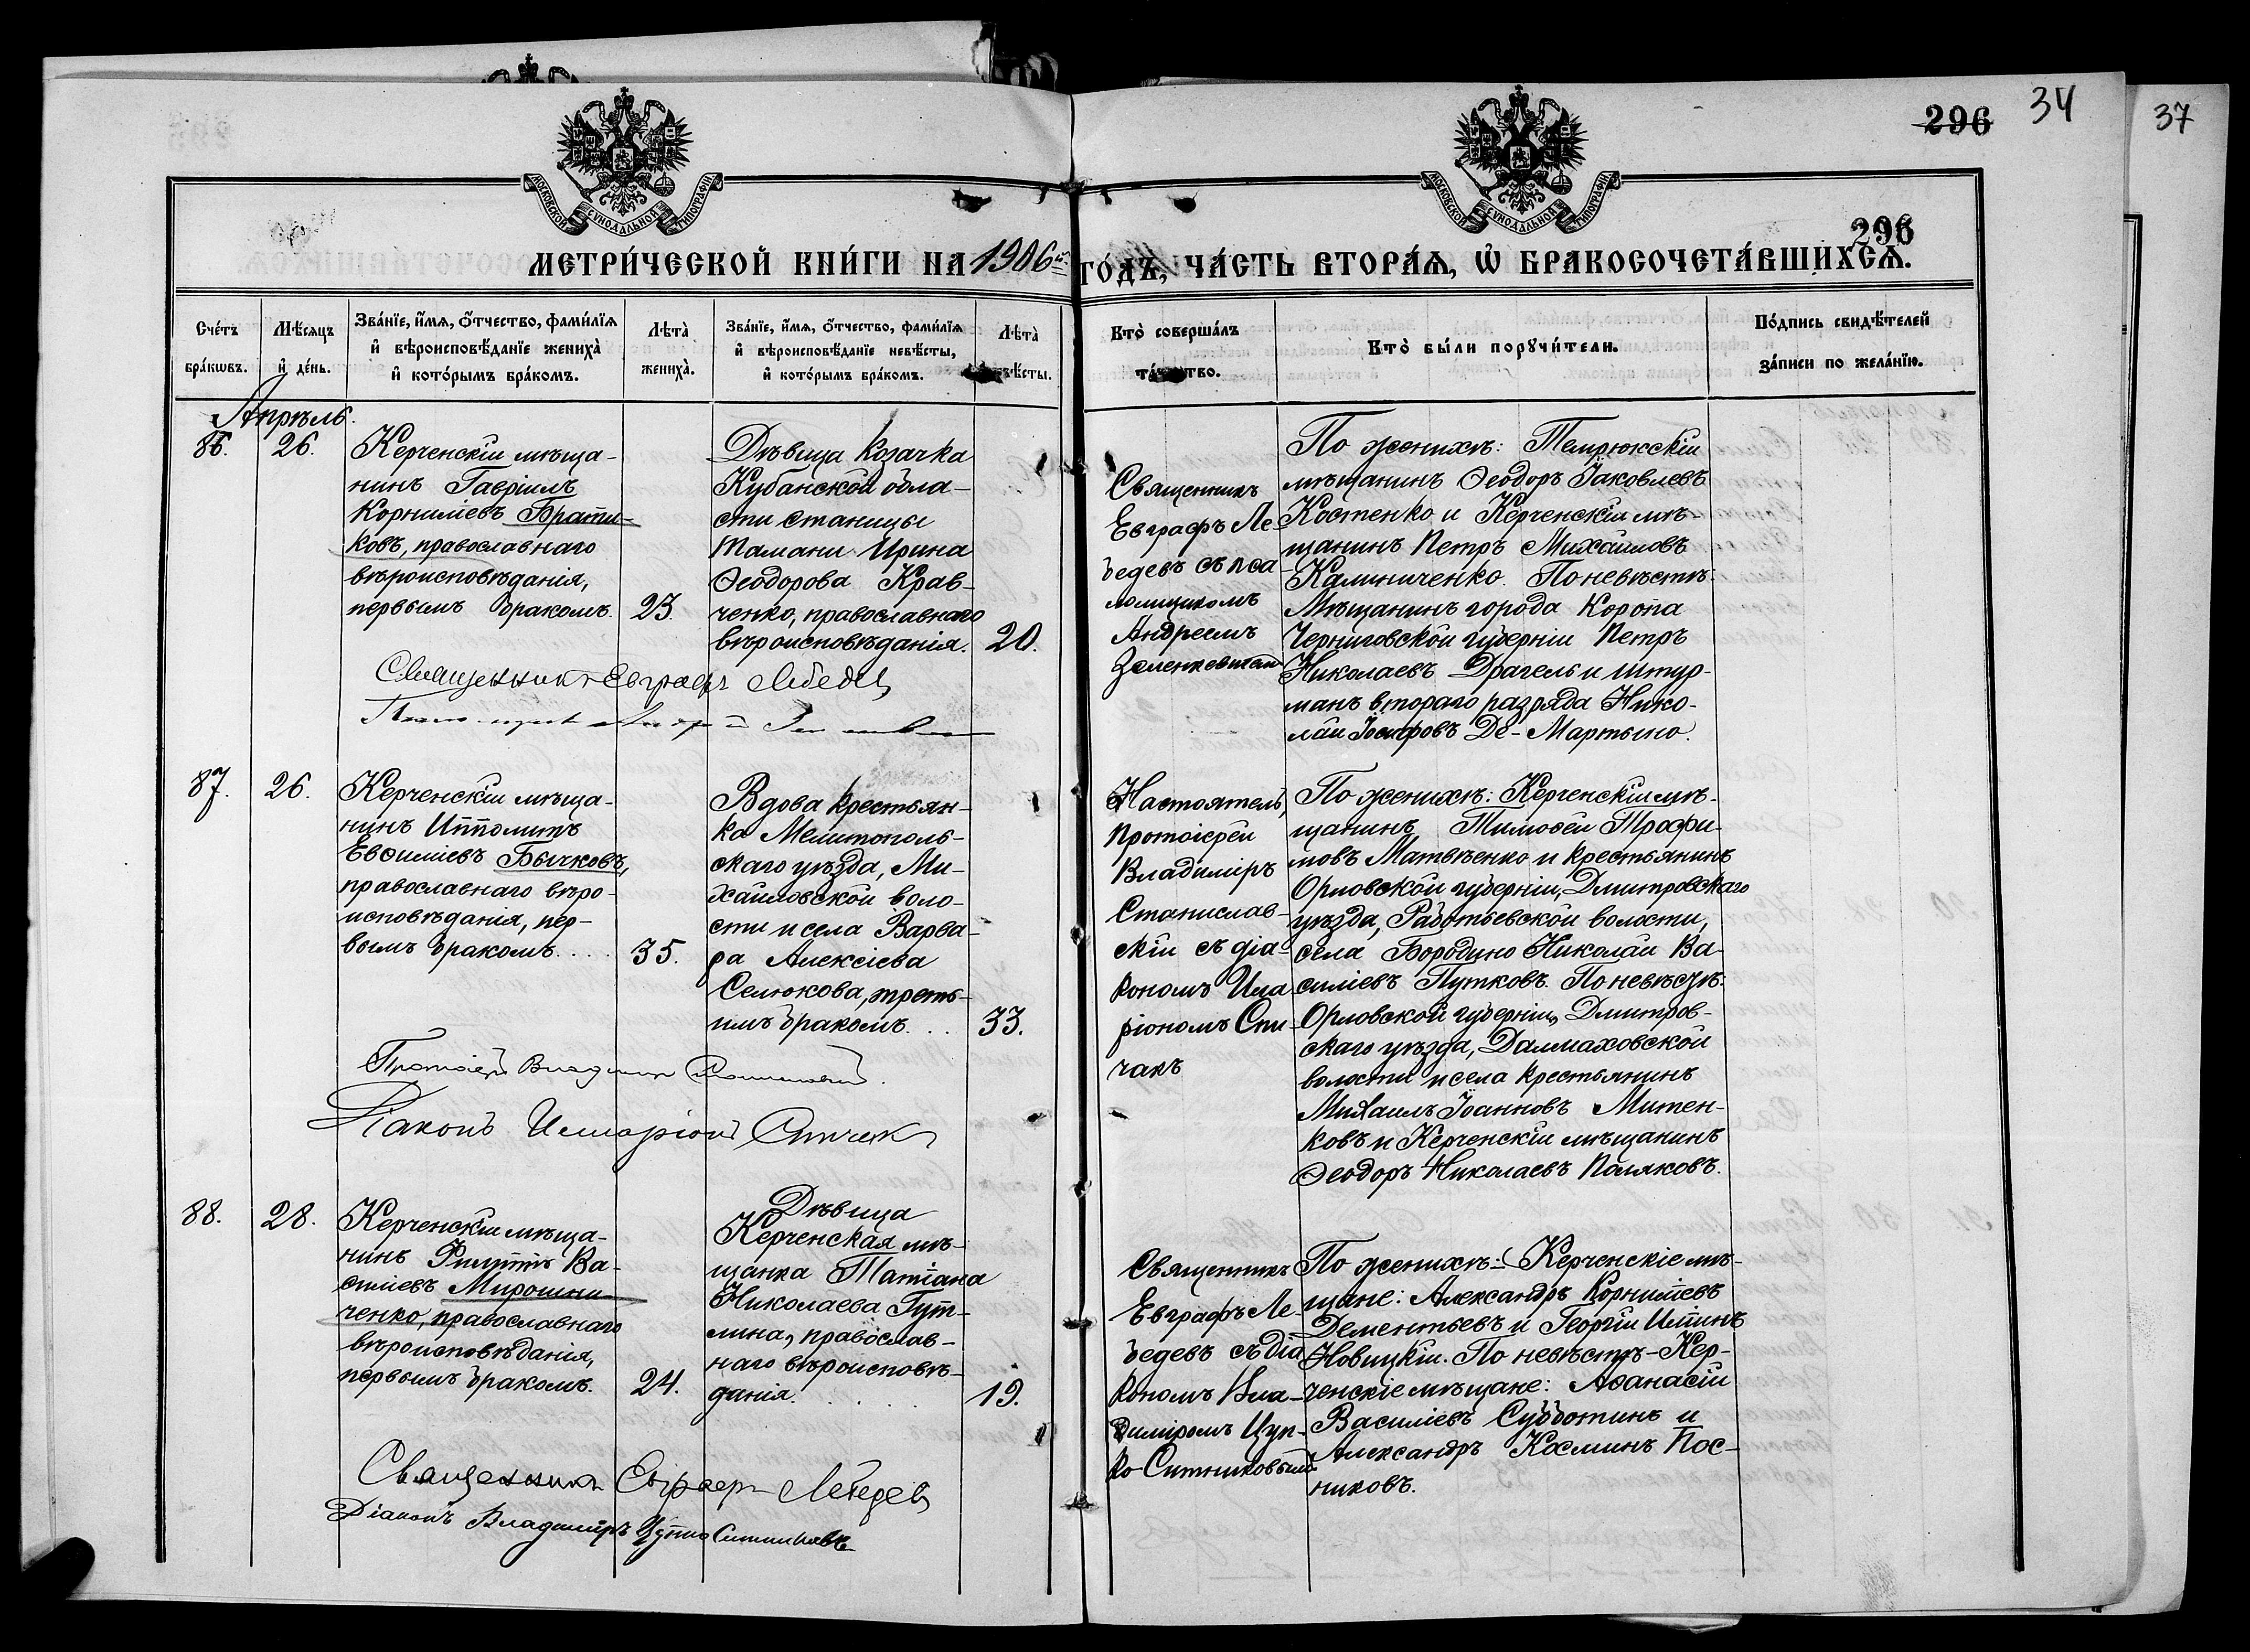 34
37
296
296
МОСКОВСКОЙ СѴНОДАЛЬНОЙ ТИПОГРАФІИ
МОСКОВСКОЙ СѴНОДАЛЬНОЙ ТИПОГРАФІИ
МЕТРИ́ЧЕСКОЙ КНИ́ГИ НА 1906й ГО́ДЪ, ЧА́СТЬ ВТОРА́Ѧ, Ѡ҆ БРАКОСОЧЕТА́ВШИХСѦ.
Сче́тъ
бра́кѡвъ.
Мѣ́сѧцъ
и҆ де́нь.
Зва́нїе, и҆́мѧ, ѻ҆́тчество, фами́лїѧ
и҆ вѣроисповѣ́данїе жениха̀
и҆ кото́рымъ бра́комъ.
Лѣта̀
жениха̀.
Зва́нїе, и҆́мѧ, ѻ҆́тчество, фами́лїѧ
и҆ вѣроисповѣ́данїе невѣ́сты,
и҆ кото́рымъ бра́комъ.
Лѣта̀
невѣ́сты.
Кто̀ соверша́лъ
та́инство.
Кто̀ бы́ли порꙋчи́тели.
По́дпись свидѣ́телей
за́писи по жела́нїю.
Апрѣль.
86.
26.
Керченскій мѣща-
нинъ Гавріилъ
Корниліевъ Брати-
ковъ, православнаго
вѣроисповѣданія,
первымъ бракомъ.
23.
Дѣвица козачка
Кубанской обла-
сти станицы
Тамани Ирина
Ѳеодорова Крав-
ченко, православнаго
вѣроисповѣданія.
20.
Священникъ
Евграфъ Ле-
бедевъ съ пса-
ломщикомъ
Андреемъ
По женихѣ: Темрюкскій
мѣщанинъ Ѳеодоръ Іаковлевъ
Костенко и Керченскій мѣ-
щанинъ Петръ Михайловъ
Калиниченко. По невѣстѣ:
Мѣщанинъ города Коропа
Черниговской губерніи Петръ
Николаевъ Драгель и штур-
манъ втораго разряда Нико-
лай Іосифовъ Де-Мартыно.
Священникъ Евграфъ Лебедевъ
87.
26.
Керченскій мѣща-
нинъ Ипполитъ
Евѳиміевъ Бычковъ,
православнаго вѣро-
исповѣданія, пер-
вымъ бракомъ....
35.
Вдова крестьян-
ка Мелитополь-
скаго уѣзда, Ми-
хайловской воло-
сти и села Варва-
ра Алексіева
Селюкова, треть-
имъ бракомъ...
33.
Настоятель,
Протоіерей
Владиміръ
Станислав-
скій съ діа-
кономъ Ила-
ріономъ Спи-
чакъ
По женихѣ: Керченскій мѣ-
щанинъ Тимоѳей Трофи-
мовъ Матвѣенко и крестьянинъ
Орловской губерніи, Дмитровскаго
уѣзда, Работьевской волости,
села Бородино Николай Ва-
силіевъ Путковъ. По невѣстѣ:
Орловской губерніи, Дмитров-
скаго уѣзда, Далмаховской
волости и села крестьянинъ
Михаилъ Іоанновъ Митен-
ковъ и Керченскій мѣщанинъ
Ѳеодоръ Николаевъ Поляковъ.
Протоіерей Владиміръ Станиславскій.
Діаконъ Илларіонъ Спичакъ
88.
28.
Керченскій мѣща-
нинъ Филиппъ Ва-
силіевъ Мирошни-
ченко, православнаго
вѣроисповѣданія,
первымъ бракомъ.
24.
Дѣвица
Керченская мѣ-
щанка Татіана
Николаева Гут-
лина, православ-
наго вѣроисповѣ-
данія.
19.
Священникъ
Евграфъ Ле-
бедевъ съ діа-
кономъ Вла-
диміромъ Цуп-
ко-Ситниковымъ
По женихѣ: Керченскіе мѣ-
щане: Александръ Корниліевъ
Дементьевъ и Георгій Ильинъ
Новицкій. По невѣстѣ-Кер-
ченскіе мѣщане: Аѳанасій
Василіевъ Субботинъ и
Александръ Косминъ Пос-
никовъ.
Священникъ Евграфъ Лебедевъ
Діаконъ Владиміръ Цупко Ситниковъ